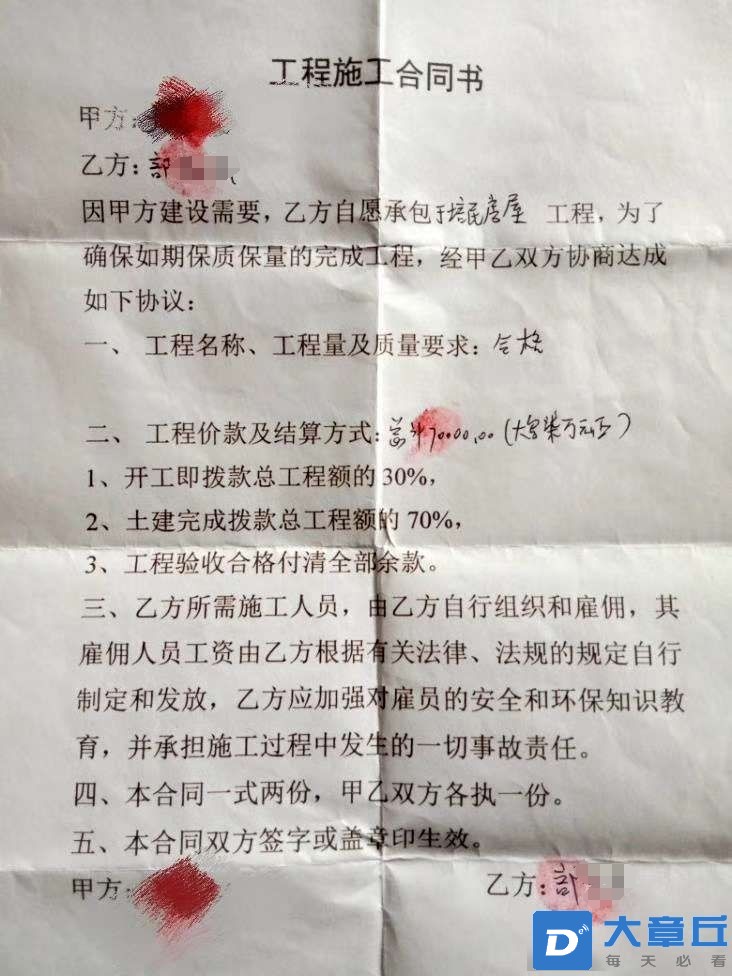 工程施工合同书
甲方:
乙方:
因甲方建设需要,乙方自愿承包于培民房屋 工程,为了
确保如期保质保量的完成工程,经甲乙双方协商达成
如下协议:
一、 工程名称、工程量及质量要求: 合格
二、 工程价款及结算方式: 总计70000.00(大写柒万元正)
1、开工即拨款总工程额的 30%,
2、土建完成拨款总工程额的 70%,
3、工程验收合格付清全部余款。
三、乙方所需施工人员,由乙方自行组织和雇佣,其
雇佣人员工资由乙方根据有关法律、法规的规定自行
制定和发放,乙方应加强对雇员的安全和环保知识教
育,并承担施工过程中发生的一切事故责任。
四、本合同一式两份,甲乙双方各执一份。
五、本合同双方签字或盖章印生效。
甲方: 乙方:
大章丘
每天必看